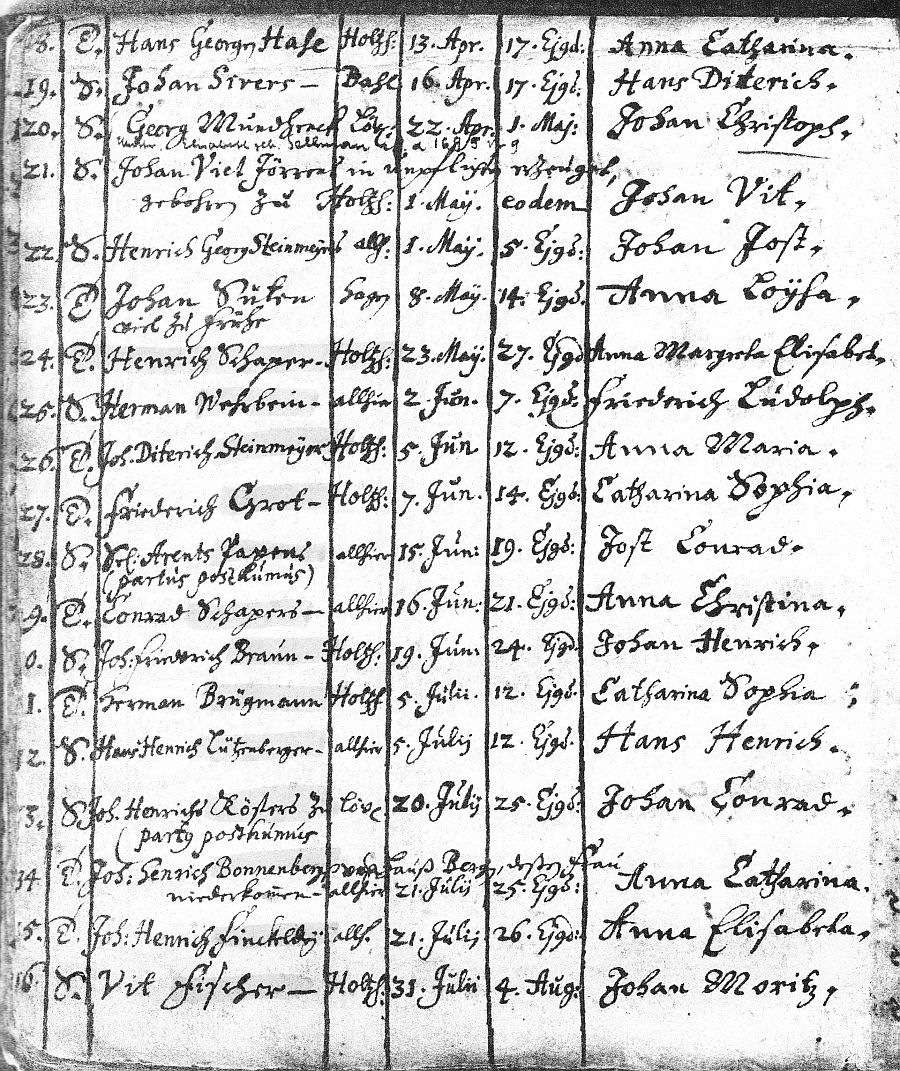 18. T. Hans Georg Hase Holtzh: 13. Apr. 17. Ejgd: Anna Catharina.
19. S. Johan Sivers – Dahl 16. Apr. 17. Ejgd: Hans Diterich.
20. S. Georg Mundhenck 22. Apr. 1. Maj: Johan Christoph.
21. S. Johan Viet Jörrens in unpflichten erzeuget,
gebohren zu Holtzh: 1. May. eodem Johan Vit.
22. S. Henrich Georg Steinmeyers allh: 1. May. 5. Ejgd: Johan Jost.
23. T. Johan Süken hagen 8. May. 14. Ejgd. Anna Loysa.
viel zu frühe
24. T. Henrich Schaper – Holtzh: 23. May. 27. Ejgd Anna Margreta Elisabet.
25. S. Herman Wehrbein – allhier 2. Jun. 7. Ejgd: Friederich Ludolph.
26. T. Joh. Diterich Steinmeyer Holtzh: 5. Jun 12. Ejgd: Anna Maria.
27. T. Friederich Grot – Holtzh: 7. Jun. 14. Ejgd: Catharina Sophia.
28. S. Sel: Arents Papens allhier 15. Jun: 19. Ejgd: Jost Conrad.
(partus posthumus)
9. T. Conrad Schapers – allhier 16. Jun: 21. Ejgd: Anna Christina.
0. S. Joh: Friederich Braun – Holtzh: 19. Jun: 24. Ejgd: Johan Henrich.
1. T. Herman Brügmann Holtzh 5. Julii. 12. Ejgd. Catharina Sophia
12. S. Hans Henrich Lützenberger – allhier 5. Julij 12. Ejgd. Hans Henrich.
3. S. Joh. Henrichs Kösters zu 20. Julij 25. Ejgd: Johan Conrad.
(party posthumus
34 T. Joh: Henrich Bonnenberg Berg, desßen Frau
niederkom̄en – allhier 21. Julij 25. Ejgd: Anna Catharina.
5. T. Joh: Henrich allh. 21. Julij 26. Ejgd: Anna Elisabeta.
16. S. Vit Fischer – Holtzh: 31. Julii 4. Aug: Johan Moritz.